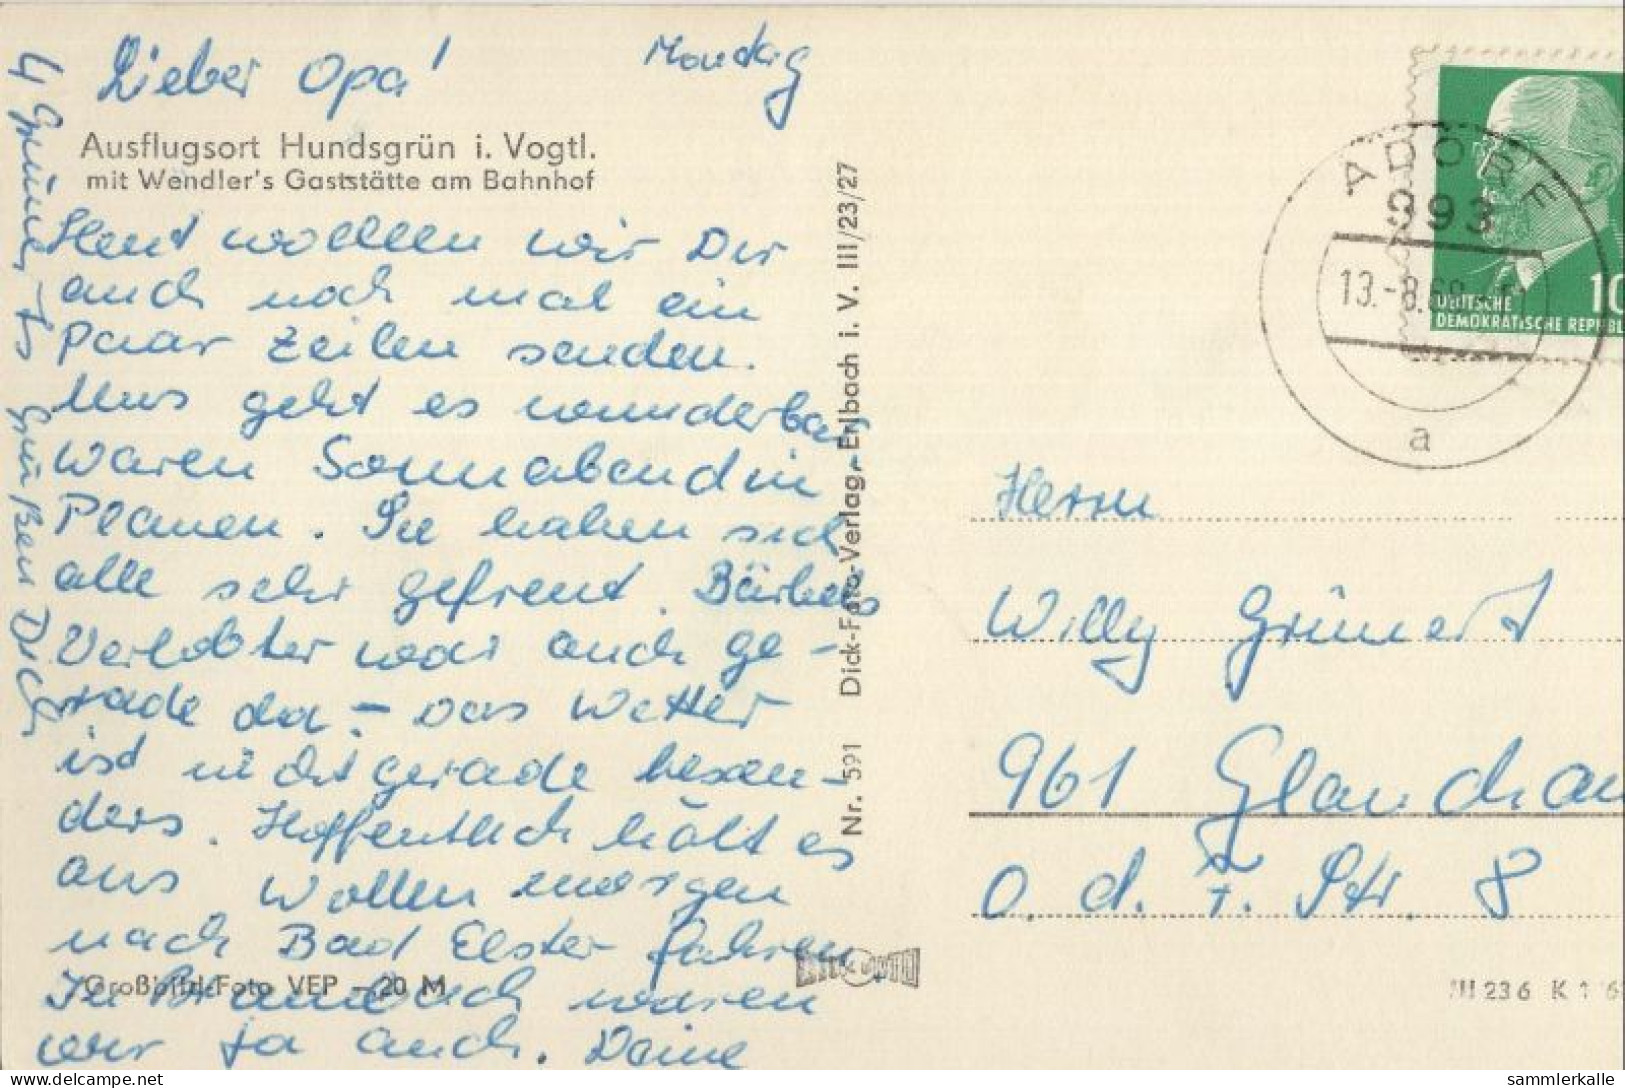 Lieber Opa!
Montag
Ausflugsort Hundsgrün i. Vogtl.
mit Wendler's Gaststätte am Bahnhof
Heut wollen wir Dir
auch noch mal ein
paar Zeilen senden.
Uns geht es wunderbar
waren Sonnabend in
Plauen. Sie haben sich
alle sehr gefreut. Bärbels
Verlobter war auch ge-
rade da. - Das Wetter
ist nicht gerade beson-
ders. Hoffentlich hält es
aus wollen morgen
nach Bad Elster fahren
In Brambach waren
wir ja auch. Deine
4 Grünerts
grüßen Dich
Großbild-Foto VEP - 20 M
Nr. 591 Dick-Foto-Verlag, Erlbach i. V. III/23/27
ADORF
993
13.-8.68
a
DEUTSCHE
DEMOKRATISCHE REPUBL
10
Herrn
Willy Grünert
961 Glauchau
O. d. F. Str. 8
III 23 6 K 1
sammlerkalle